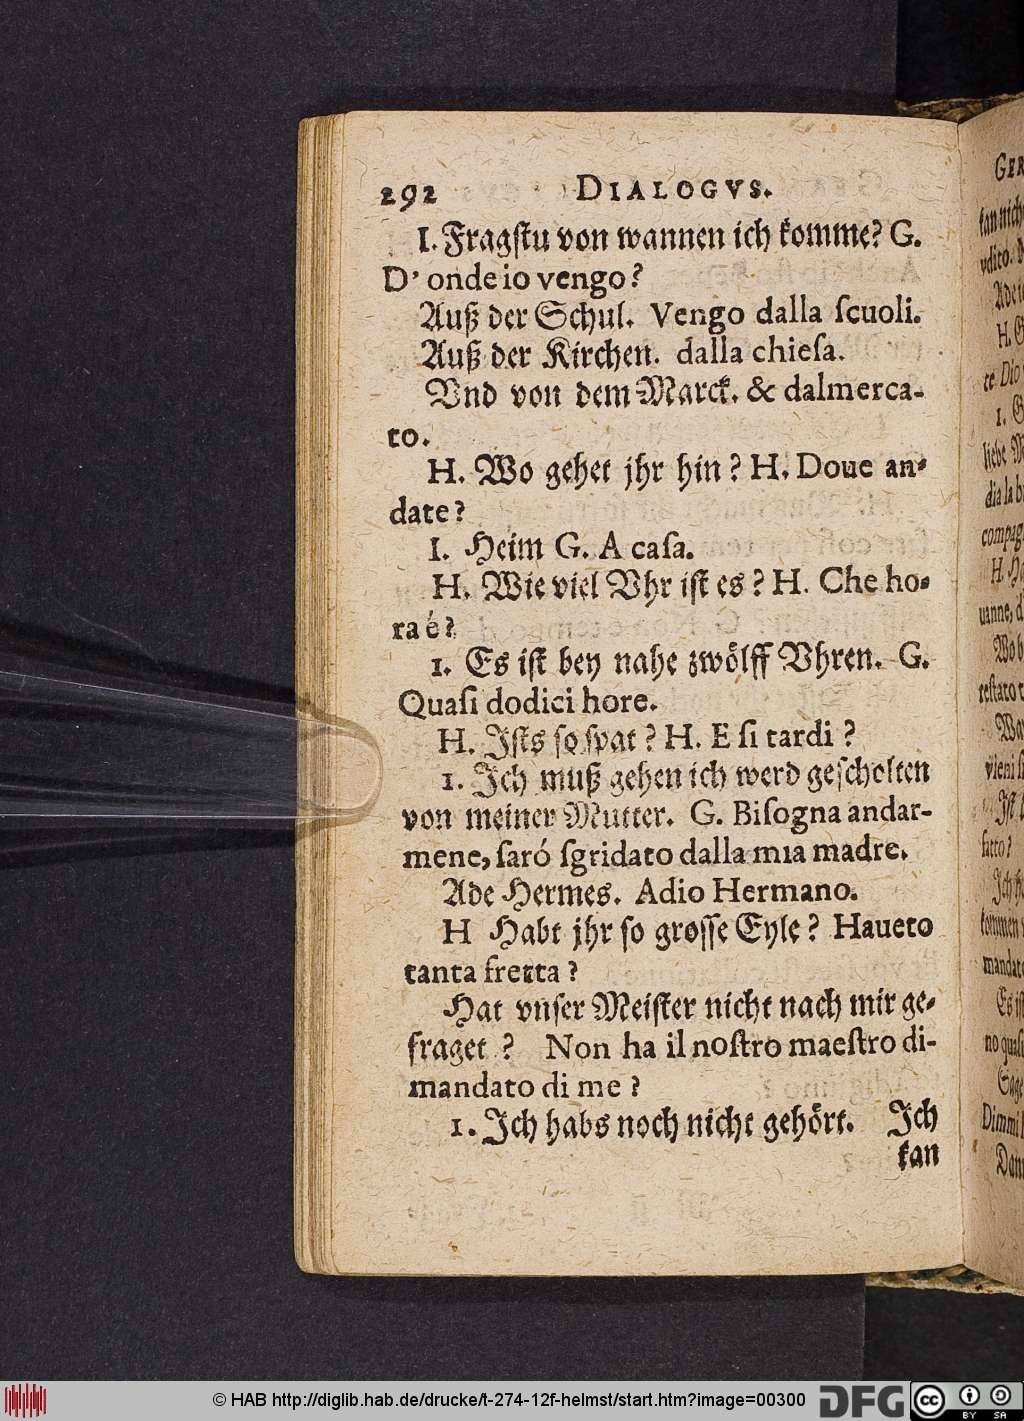 292 DIALOGVS.
I. Fragſtu von wannen ich komme? G.
D' onde io vengo?
Auß der Schul. Vengo dalla ſcuoli.
Auß der Kirchen. dalla chieſa.
Vnd von dem Marck. & dalmerca-
to.
H. Wo gehet jhr hin? H. Doue an-
date?
I. Heim G. A caſa.
H. Wie viel Vhr iſt es? H. Che ho-
ra é?
I. Es iſt bey nahe zwölff Vhren. G.
Quaſi dodici hore.
H. Iſts ſo ſpat? H. E ſi tardi?
I. Ich muß gehen ich werd geſcholten
von meiner Mutter. G. Biſogna andar-
mene, ſaró ſgridato dalla mia madre.
Ade Hermes. Adio Hermano.
H Habt jhr ſo groſſe Eyle? Haueto
tanta fretta?
Hat vnſer Meiſter nicht nach mir ge-
fraget? Non ha il noſtro maeſtro di-
mandato di me?
I. Ich habs noch nicht gehört. Ich
kan
GER
kan nich
vdito.
Ade
H. G
ce Dio
I. G
liebe
dia la b
compag
H. Ha
uanne, d
Wo b
reſtato
Wa
vieni
Iſt
fatto?
Ich
kommen
mandato
Es iſt
no quaſi
Sage
Dimmi
Dann
© HAB http://diglib.hab.de/drucke/t-274-12f-helmst/start.htm?image=00300
DFG
cc BY SA